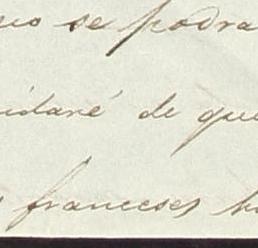 se podra
idaré de que
franceses